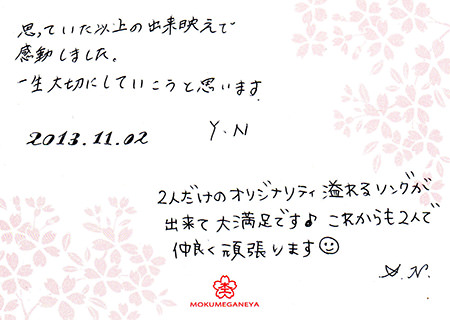 思っていた以上の出来映えで
感動しました。
一生大切にしていこうと思います
2013.11.02 Y.N
2人だけのオリジナリティ溢れるリングが
出来て大満足です♪ これからも2人で
仲良く頑張ります☺
A.N.
MOKUMEGANEYA